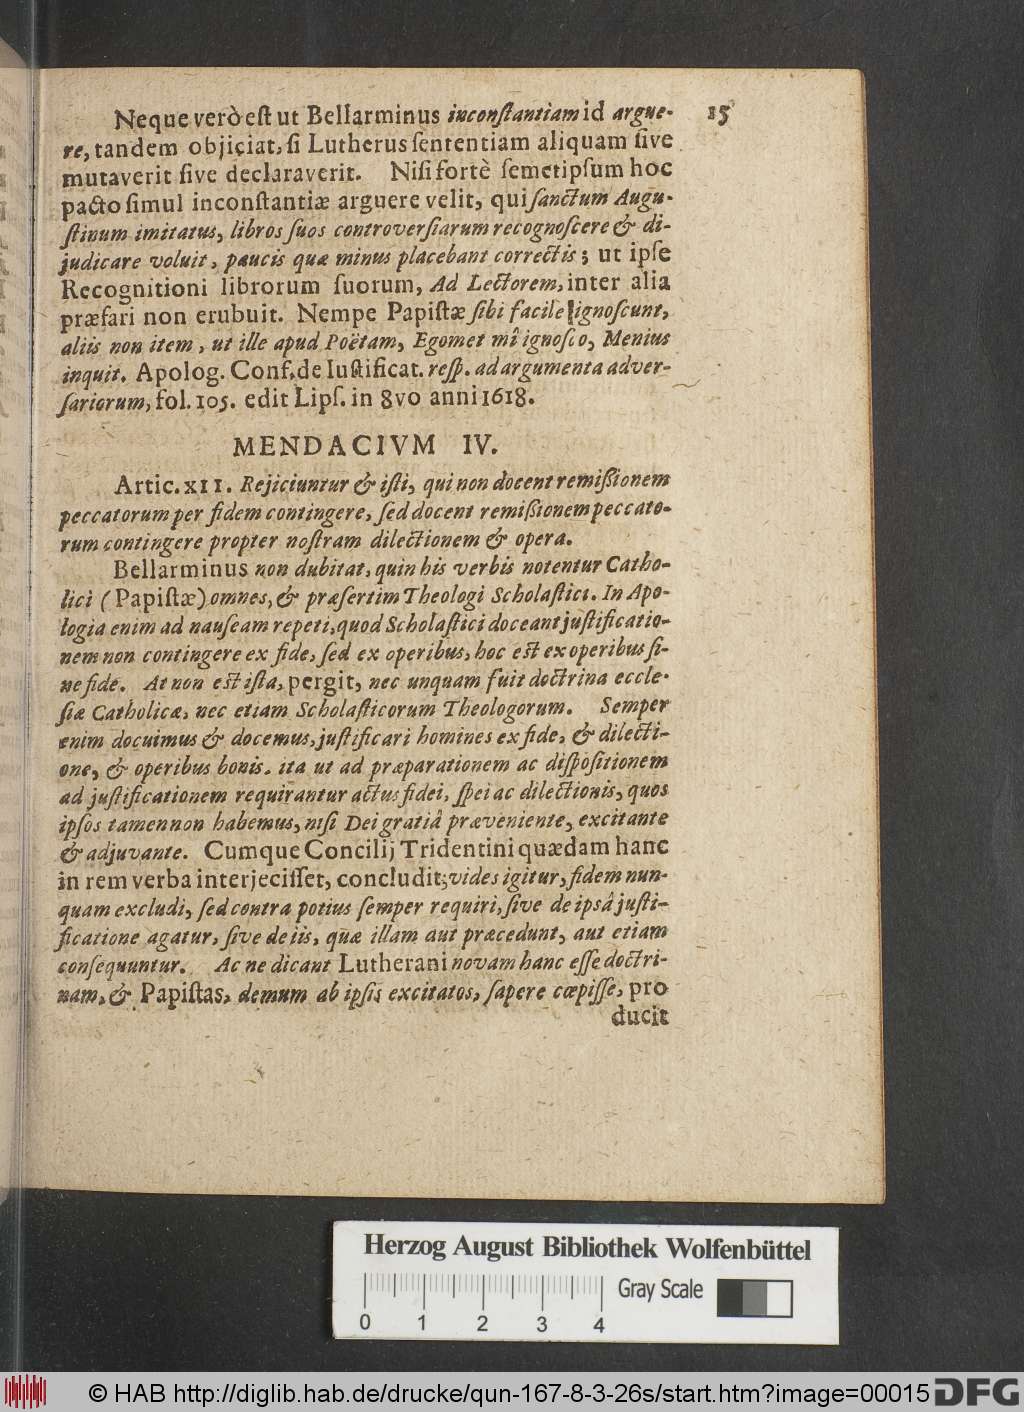 15
Neque verò eſt ut Bellarminus inconſtantiam id argue-
re, tandem objiciat, ſi Lutherus ſententiam aliquam ſive
mutaverit ſive declaraverit. Niſi fortè ſemetipſum hoc
pacto ſimul inconſtantiæ arguere velit, qui ſanctum Augu-
ſtinum imitatus, libros ſuos controverſiarum recognoſcere & di-
judicare voluit, paucis quæ minus placebant correctis; ut ipſe
Recognitioni librorum ſuorum, Ad Lectorem, inter alia
præfari non erubuit. Nempe Papiſtæ ſibi facile ignoſcunt,
aliis non item, ut ille apud Poëtam, Egomet mî ignoſco, Menius
inquit. Apolog. Conf. de Iuſtificat. reſp. ad argumenta adver-
ſariorum, fol. 105. edit Lipſ. in 8vo anni 1618.
MENDACIVM IV.
Artic. XII. Rejiciuntur & iſti, qui non docent remiſſionem
peccatorum per fidem contingere, ſed docent remiſſionem peccato-
rum contingere propter noſtram dilectionem & opera.
Bellarminus non dubitat, quin his verbis notentur Catho-
lici (Papiſtæ) omnes, & præſertim Theologi Scholaſtici. In Apo-
logia enim ad nauſeam repeti, quod Scholaſtici doceant juſtificatio-
nem non contingere ex fide, ſed ex operibus, hoc est ex operibus ſi-
ne fide. At non est iſta, pergit, nec unquam fuit doctrina eccle-
ſiæ Catholicæ, nec etiam Scholaſticorum Theologorum. Semper
enim docuimus & docemus, juſtificari homines ex fide, & dilecti-
one, & operibus bonis. ita ut ad præparationem ac diſpoſitionem
ad juſtificationem requirantur actus fidei, ſpei ac dilectionis, quos
ipſos tamen non habemus, niſi Dei gratiâ præveniente, excitante
& adjuvante. Cumque Concilij Tridentini quædam hanc
in rem verba interjeciſſet, concludit; vides igitur, fidem nun-
quam excludi, ſed contra potius ſemper requiri, ſive de ipsâ juſti-
ficatione agatur, ſive de iis, quæ illam aut præcedunt, aut etiam
conſequuntur. Ac ne dicant Lutherani novam hanc eſſe doctri-
nam, & Papiſtas, demum ab ipſis excitatos, ſapere cœpiſſe, pro
ducit
Herzog August Bibliothek Wolfenbüttel
Gray Scale
0 1 2 3 4
© HAB http://diglib.hab.de/drucke/qun-167-8-3-26s/start.htm?image=00015
DFG